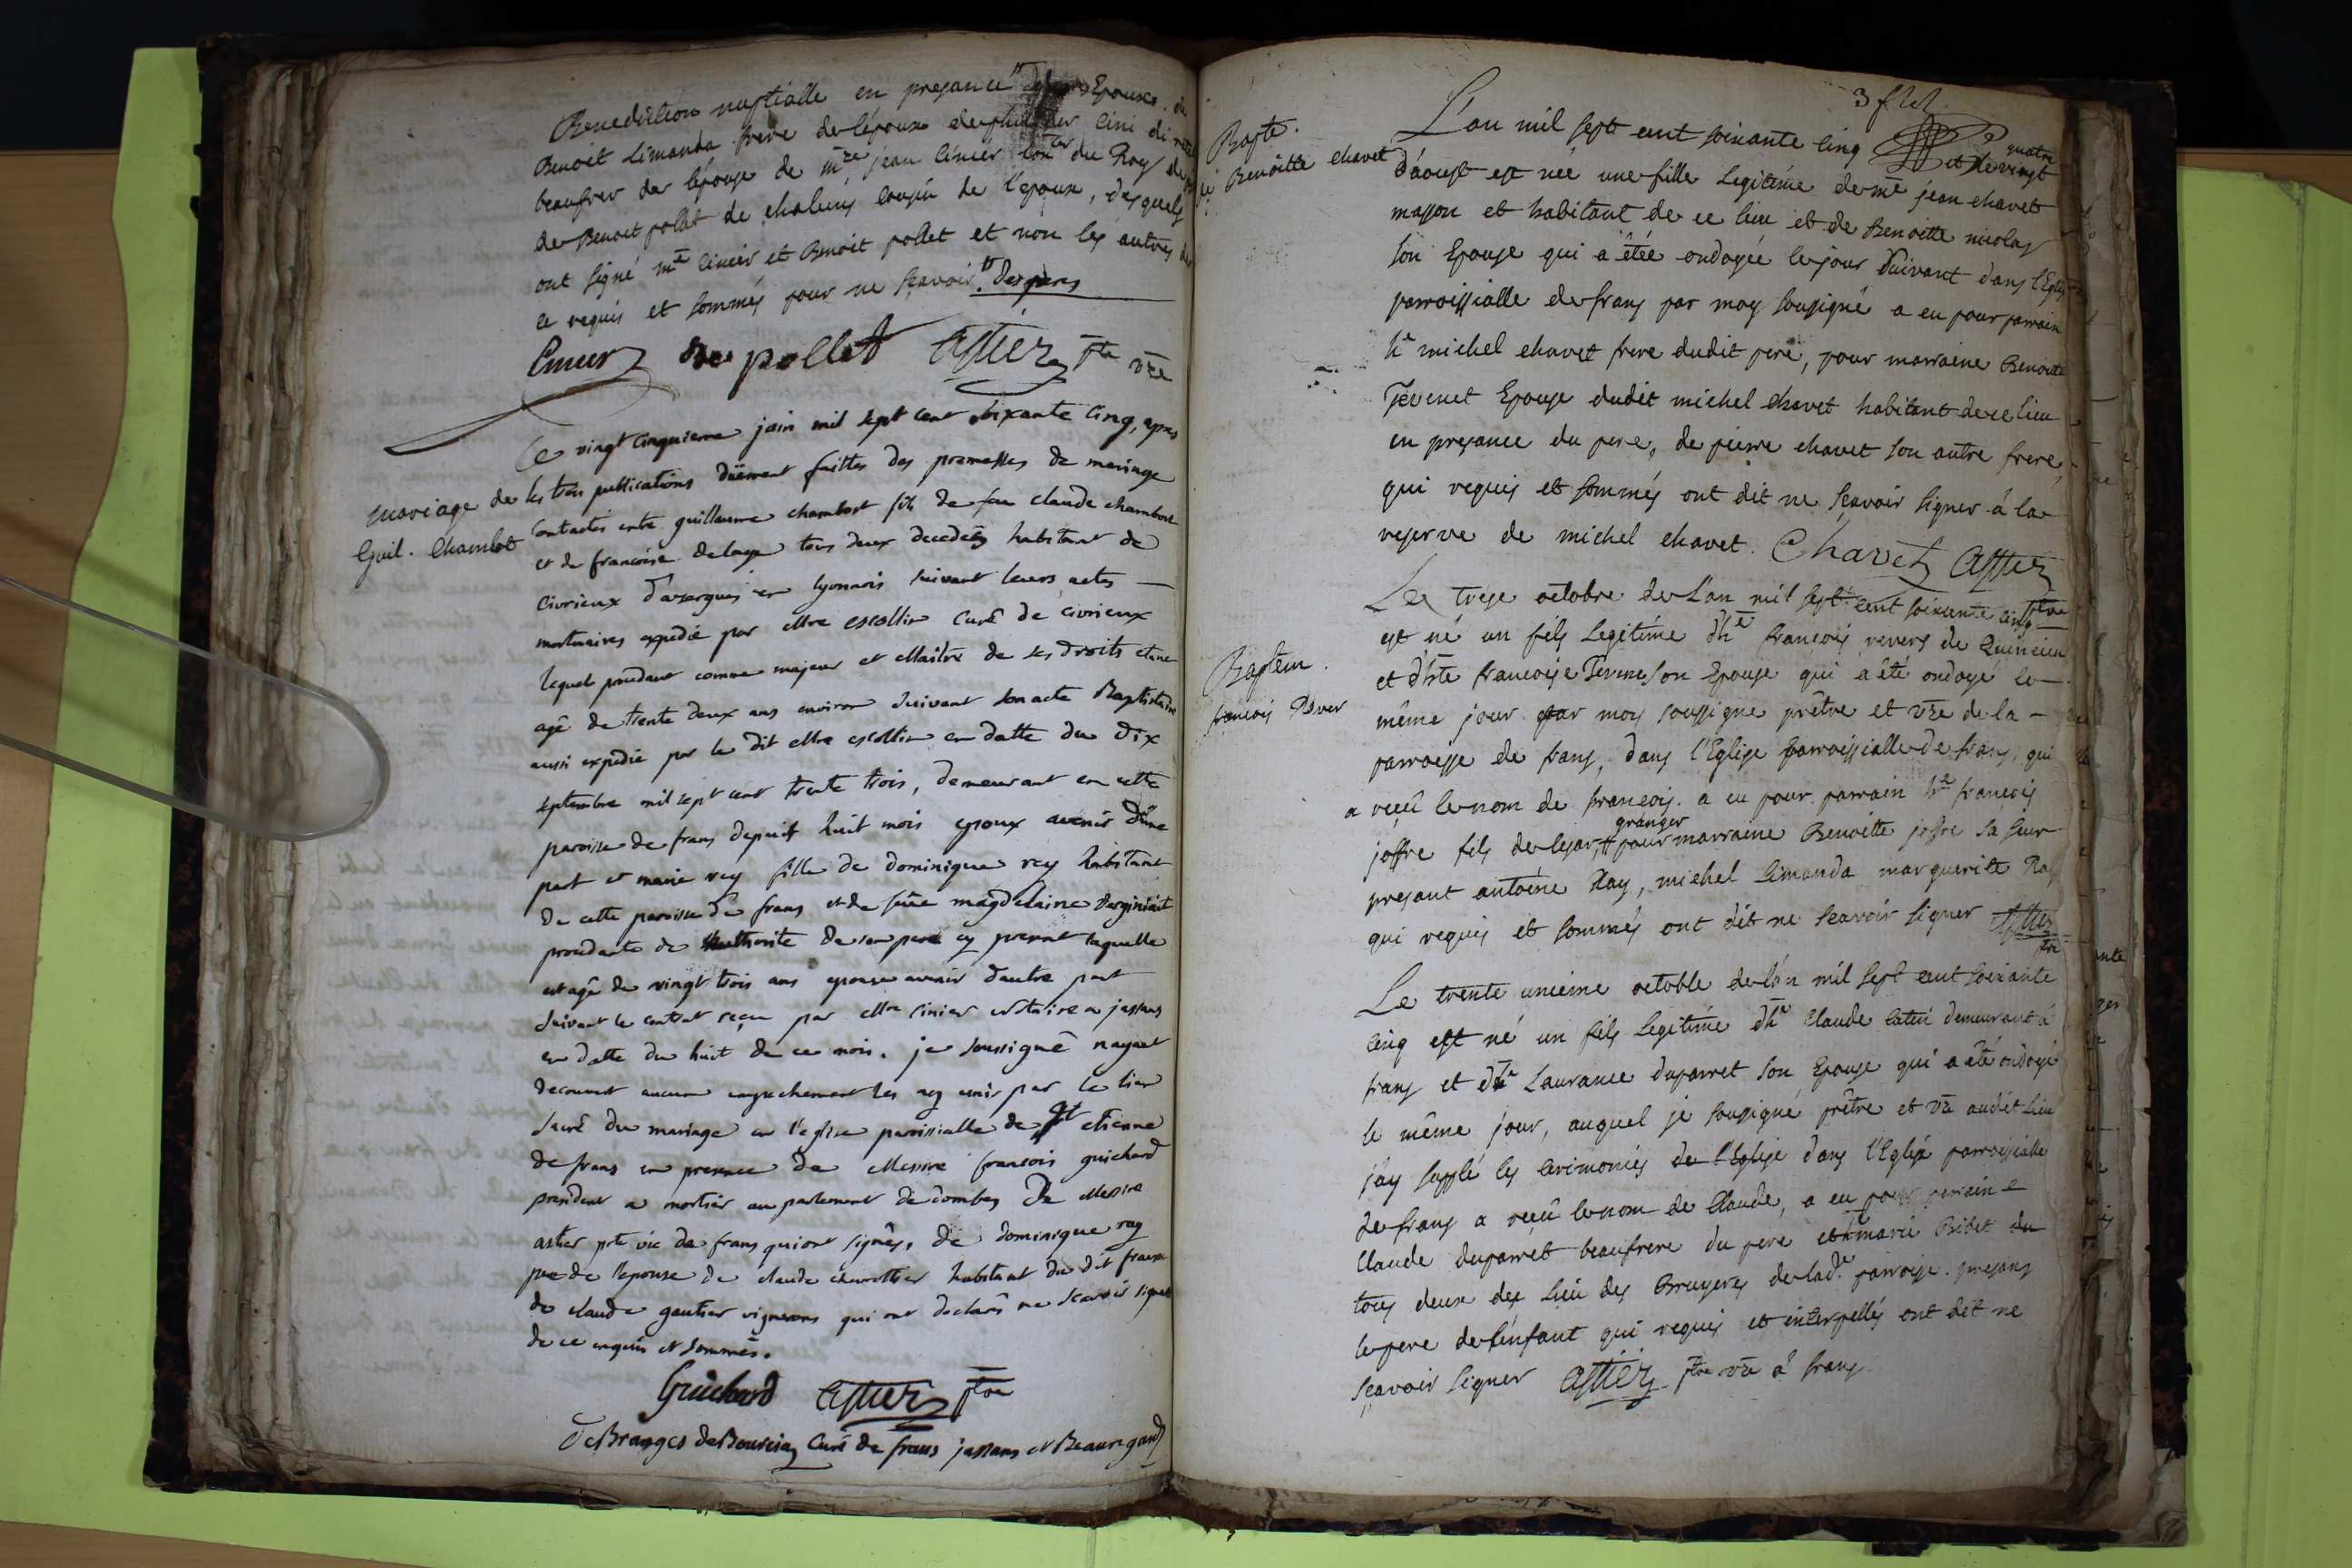 Benediction nuptialle en presance Epouse de
Benoit Limanda frere de lépoux de cini
beaufrere de lépouse de mre jean Cinier du Roy de
de Benoit pollet de chaleins cousin de l'epoux, desquels
ont signé me Cinier et Benoit pollet et non les autres de
ce requis et sommés pour ne scavoir. des peres
Cinier pollet Astier ptre vre
Ce vingt cinquieme juin mil sept cent soixante cinq, apres
mariage de
Guil. Chambot
les trois publications düement faittes des promesses de mariage
contractés entre guillaume chambost fils de feu claude chambost
et de francoise delaye tous deux decedées habitant de
civrieux d'asergues en lyonnois suivant leurs actes
mortuaires expedié par mre escollin curé de civrieux
lequel procedant comme majeur et maitre de ses droits etant
agé de trente deux ans environ suivant son acte Baptistaire
aussi expedié par le dit mre escollin en datte du dix
septembre mil sept cent trente trois, demeurant en cette
paroisse de frans depuis huit mois epoux avenir d'une
part et marie rey fille de dominique rey habitant
de cette paroisse de frans et de feüe magdelaine
procedante de l'authorité de son pere cy present laquelle
est agé de vingt trois ans epouse avenir dautre part
suivant le contrat reçu par mre cinier notaire a jassans
en datte du huit de ce mois. je soussigné nayant
decouvert aucun empechement les ay unis par le lien
sacré du mariage en l'eglise paroissialle de st etienne
de frans en presence de messire francois guichard
president a mortier au parlement de dombes De messire
astier ptre vic de frans qui ont signés, de dominique rey
pere de l'epouse de claude chavottier habitant du dit frans
de claude gautier vignerons qui ont declarés ne scavoir signer
de ce enquis et sommés.
Guichard Astier ptre
DeBranges deBourcia curé de frans jassans et Beauregard
3 flet
Bapte.
de Benoitte chavet
L'an mil sept cent soixante cinq et le vingt quatre
d'aoust est née une fille Legitime de me jean chavet
masson et habitant de ce lieu et de Benoitte nicolas
son Epouse qui a êtée ondoyée le jour suivant dans l'Eglise
parroissialle de frans par moy soussigné a eu pour parrain
he michel chavet frere dudit pere, pour marraine Benoitte
Tevenet Epouse dudit michel chavet habitant de ce lieu
en presance du pere, de pierre chavet son autre frere,
qui requis et sommés ont dit ne scavoir signer á la
reserve de michel chavet. Chavet Astier
ptre
Baptém.
francois Rever
Le treze octobre de L'an mil sept cent soixante cinq
est né un fils Legitime dhe francois revers de Quincieu
et d'hte francoise Terme son Epouse qui a été ondoyé le
même jour par moy soussigne prêtre et vre de la
parroisse de frans, dans l'Eglise parroissialle de frans, qui
a reçû le nom de francois. a eu pour parrain he francois
joffre fils de lejar, granger pour marraine Benoitte joffre sa seur
presant antoine Ray, michel Limanda marguerite Ray
qui requis et sommés ont dit ne scavoir signer Astier
ptre
Le trente unieme octoble de l'an mil sept cent soixante
cinq est né un fils Legitime dhe Claude catin demeurant á
frans et dhe Laurance duparret son Epouse qui a êté ondoyé
le même jour, auquel je soussigné prêtre et vre audit lieu
j'ay supplé les cerimonies de l'Eglise dans l'Eglise parroissialle
de frans a reçû le nom de Claude, a eu pour parrain
Claude duparret beaufrere du pere et marie Bidet du
tous deux des Lieu des Bruyeres de lade parroisse. presans
le pere de lenfant qui requis et interpellés ont dit ne
scavoir signer Astier ptre vre á frans